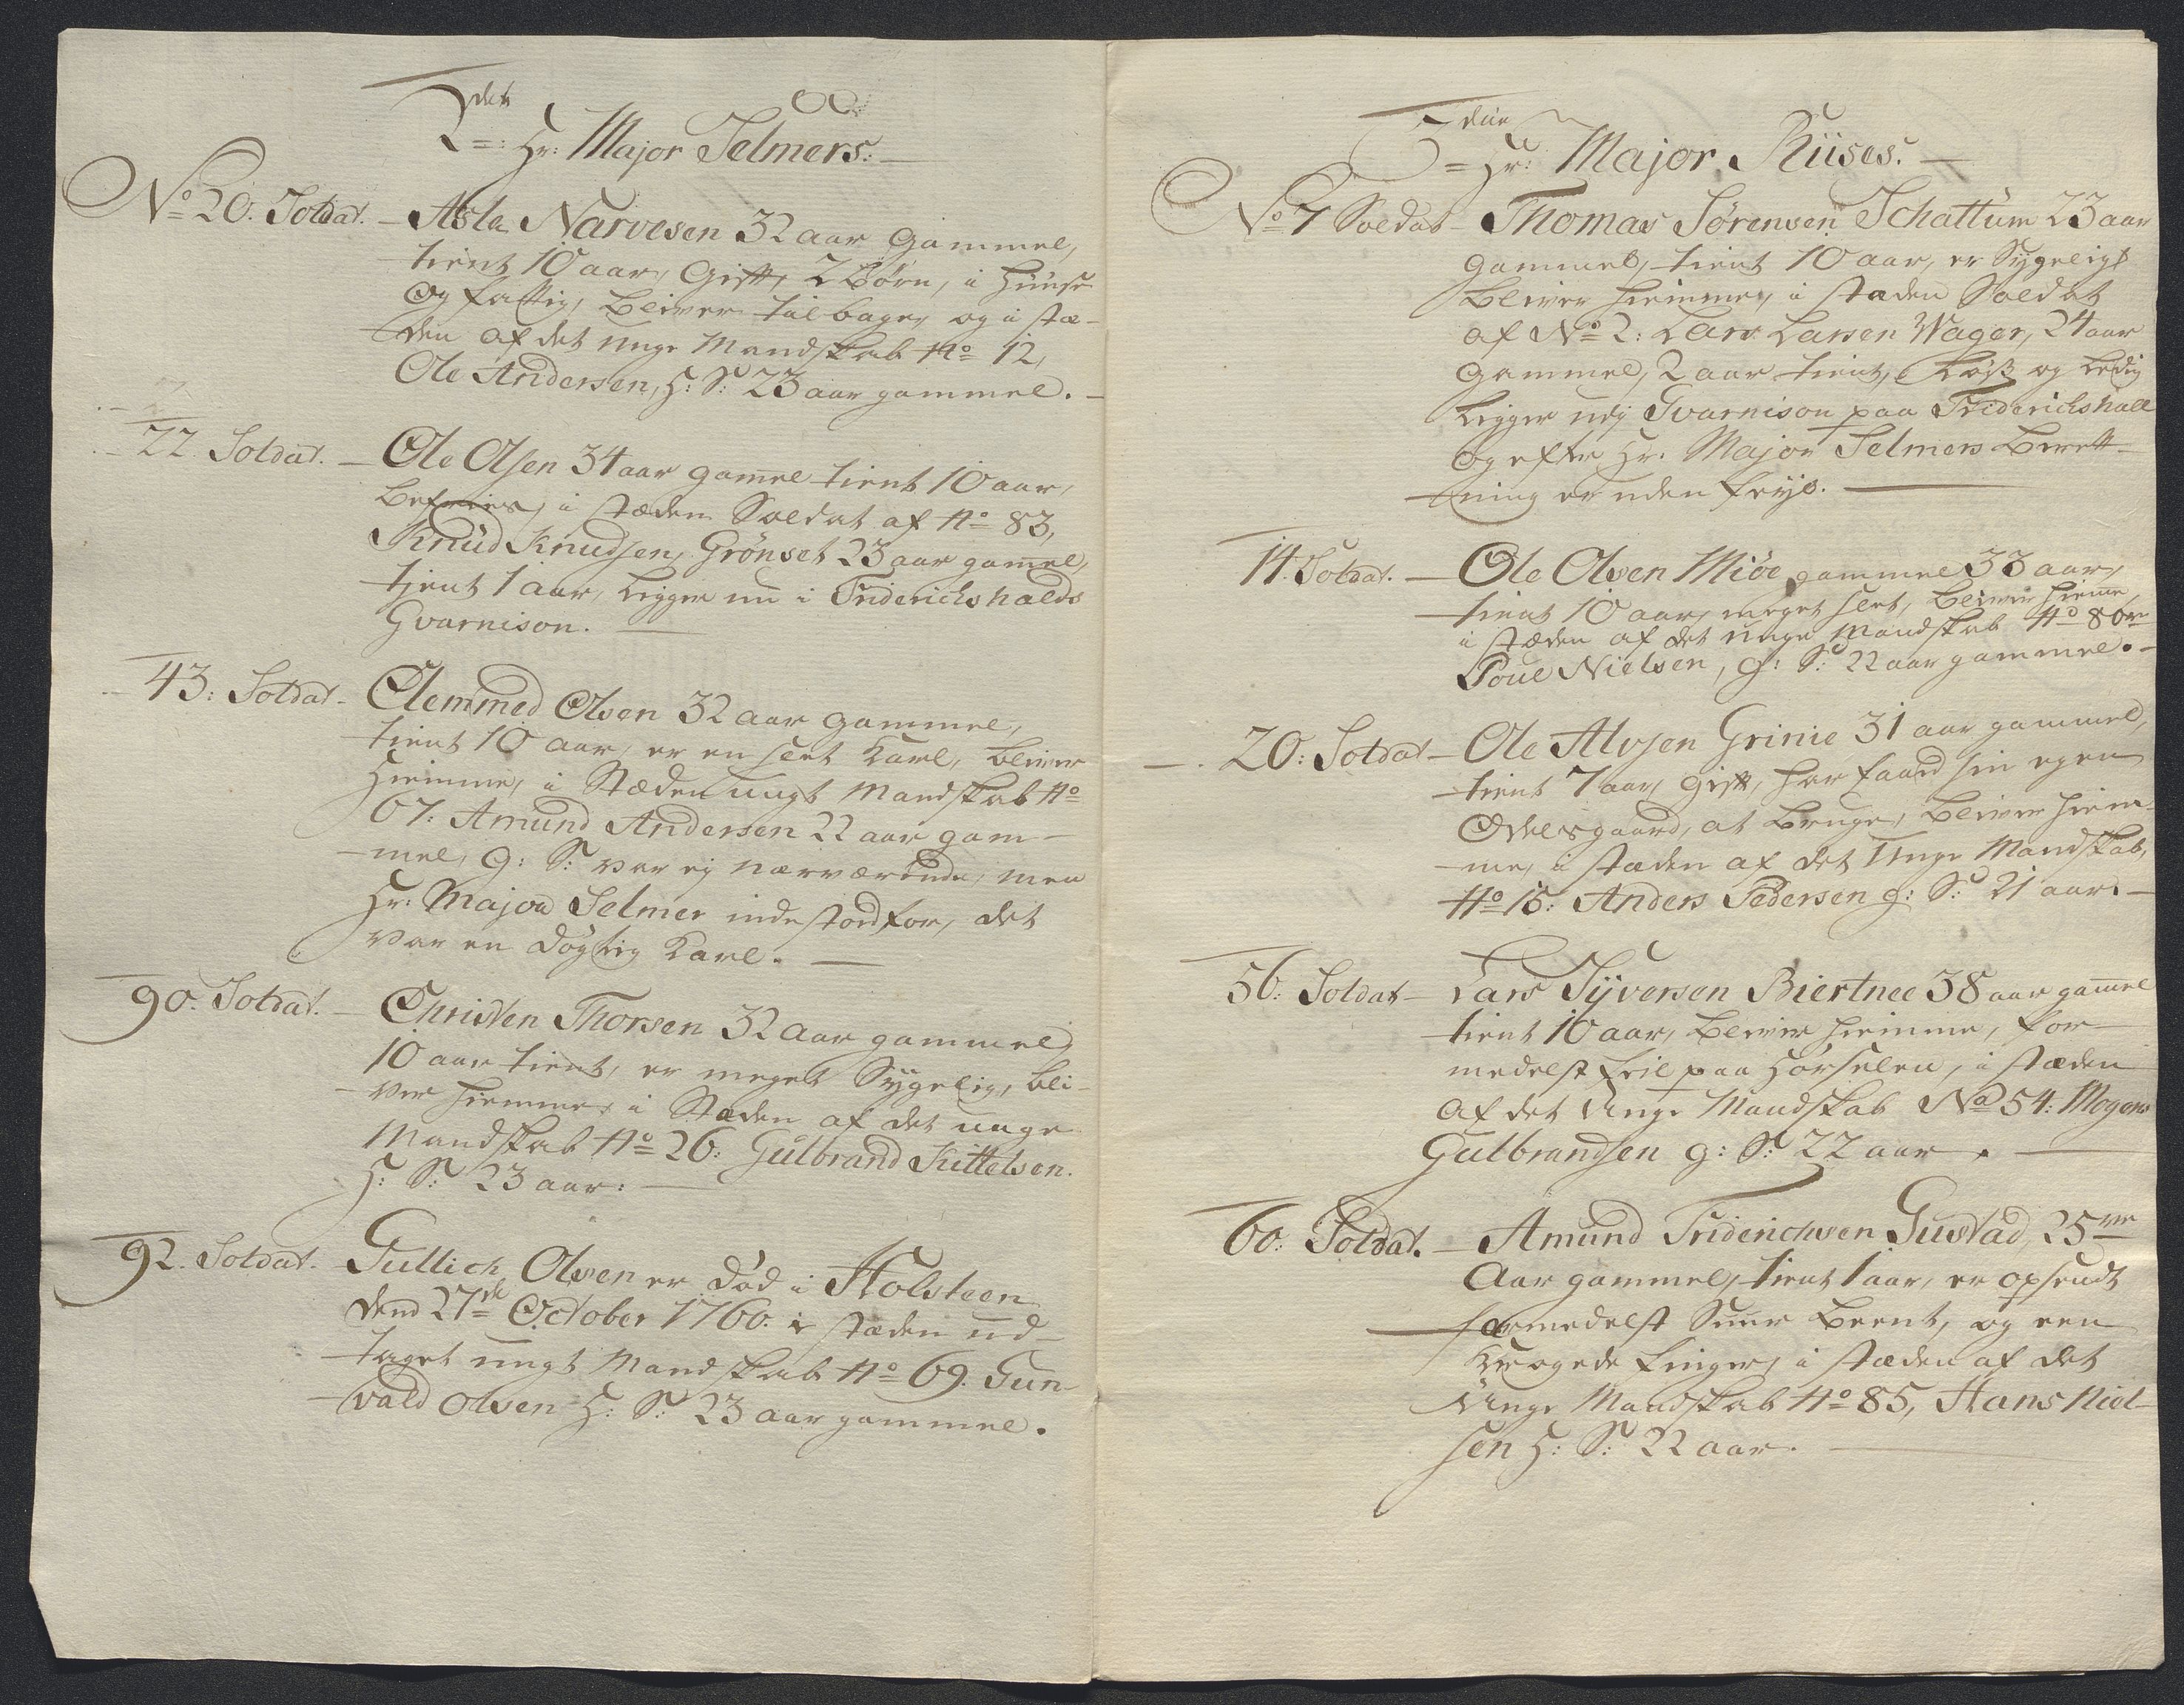 2den Hr: Major Selmers:
No 20. Soldat. Asle Narvesen 32 aar gammel,
tient 10 aar, Gift, 2 Børn, i Huuse
og fattig, bliver tilbage, og i stæ-
den af det unge Mandskab No 12,
Ole Andersen, H: S: 23 aar gammel.
22 Soldat. Ole Olsen 34 aar gamel tient 10 aar,
befries, i stæden Soldat af No 83,
Knud Knudsen Grønset 23 aar gamel,
tjent 1 aar, ligger nu i Friderichshalds
Gvarnison.
43: Soldat. Clemmed Olsen 32 aar gammel,
tient 10 aar, er en slet Karl, bliver
hiemme, i Stæden ungt Mandskab No
67: Amund Andersen 22 aar gam-
mel, g: S: var ej nærværende, men
Hr: Major Selmer indestod for, det
var en døgtig Karl.
90. Soldat. Christen Thorsen 32 aar gammel,
10 aar tient, er meget Sygelig, bli-
ver hiemme, i Stæden af det unge
Mandskab No 26: Gulbrand Kittelsen.
H: S: 23 aar.
92. Soldat. Gullich Olsen er død i Holsteen
dend 27de October 1760. i stæden ud-
taget ungt Mandskab No 69. Gun-
vald Olsen H: S: 23 aar gammel.
5due Hr: Major Riises.
No 7 Soldat Thomas Sørensen Schattum 23 aar
gammel, tient 10 aar, er Sygeligt
bliver hiemme, i stæden Soldat
af No 2: Lars Larsen Wager, 24 aar
gammel, 2 aar tient, Løss og Ledig
ligger udj Gvarnison paa Friderichshall
og efter Hr. Major Selmers beret-
ning er uden feyl.
14. Soldat. Ole Olsen Miøe gammel 33 aar,
tient 10 aar, meget slet, bliver hieme,
i stæden af det unge Mandskab No 80ve
Poul Nielsen, g: S: 22 aar gammel.
20: Soldat Ole Alvsen Grinie 31 aar gammel,
tient 7 aar, gift, har faaed sin egen
Odelsgaard, at bruge, bliver hiem-
me, i stæden af det Unge Mandskab,
No 15: Anders Pedersen g: S: 21 aar.
56: Soldat Lars Syversen Biertnee 38 aar gamel
tient 10 aar, bliver hiemme, for-
medelst feil paa Hørselen, i stæden
af det Unge Mandskab No 54: Mogens
Gulbrandsen g: S: 22 aar.
60: Soldat. Amund Friderichsen Gustad, 25ve
Aar gammel, tient 1 aar, er opsendt
formedelst Suur Beent, og een
Krogede finger, i stæden af det
Unge Mandskab No 85, Hans Niel-
sen H: S: 22 aar.